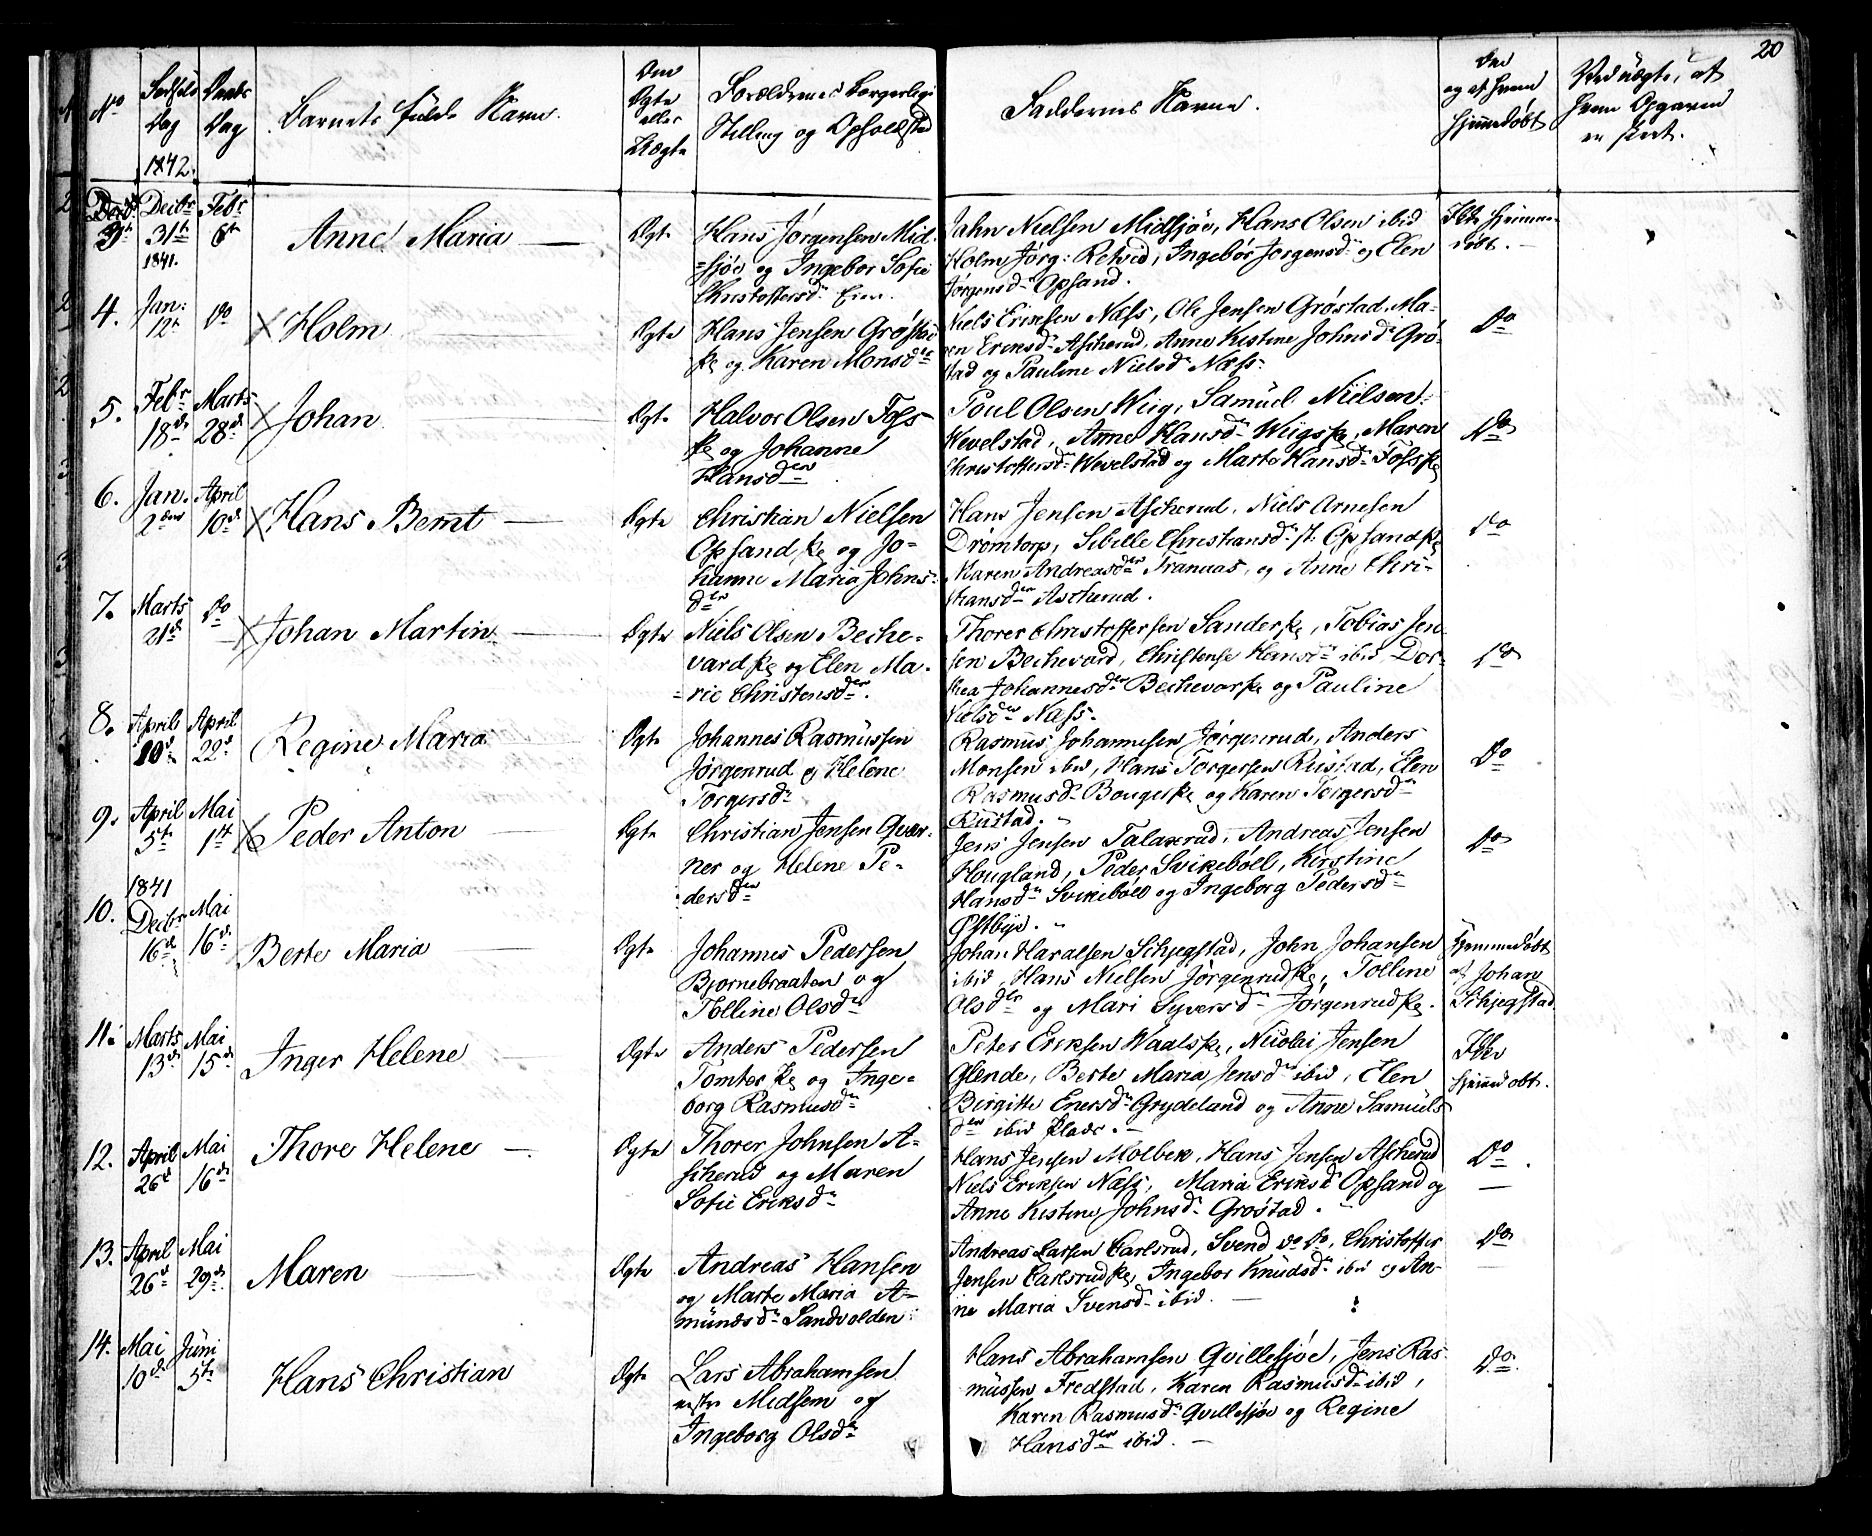 20
No
Fødsels Dag 1842.
Daabs Dag
Barnets fulde Navn.
Om Ægte eller Uægte
Forældrenes Borgerlige Stilling og Opholdsted
Faddernes Navne.
og af hvem hjemmedøbt
Ved uægte, af hvem Opgaven er skeet.
3
Decbr 31te 1841.
Febr 6te
Anne Maria
Ægte
Hans Jörgensen Mid-
=sjöe og Ingebor Sofie
Christoffersdr Eier.
Jahn Nielsen Midsjöe, Hans Olsen ibid
Holm Jörg: Retvid, Ingebör Jorgensdr og Elen
Jörgensdr Opsand.
Ikke hjemme-
döbt.
4.
Jan: 12te
Do
Holm
Ægte
Hans Jensen Gröstad
og Karen Monsdtr
Niels Eriksen Næss, Ole Jensen Gröstad, Ma-
ren Eriksdr Ascherud, Anne Kistine Johnsdr Grö-
stad og Pauline Nielsdr Næss.
Do
5.
Febr 18de
Marts 28de
Johan
Ægte
Halvor Olsen Foss
og Johanne
Hansdter
Poul Olsen Wiig, Samuel Nielsen
Kevelstad, Anne Hansdr Wiigs, Maren
Christoffersdr Wevelstad og Marte Hansdr Foss
Do
6.
Jan. 2den
April 10de
Hans Bernt
Ægte
Christian Nielsen
Opsand og Jo-
hanne Maria Johns-
dter
Hans Jensen Ascherud, Niels Arnesen
Drömtorp, Sibille Christiansdr Opsand
Karen Andreasdter Tranaas, og Anne Chri-
stiansdter Ascherud.
Do
7.
Marts 21de
Do
Johan Martin
Ægte
Niels Olsen Beche-
vard og Elen Ma-
=rie Christensdter.
Thorer Christoffersen Sander, Tobias Jen-
sen Bechevard, Christense Hansdr ibid, Dor-
thea Johannesdter Bechevar og Pauline
Nielsdter Næss.
Do
8.
April 10de
April 22de
Regine Maria
Ægte
Johannes Rasmüssen
Jörgenrud og Helene
Torgersdr
Rasmus Johannesen Jörgenrud, Anders
Monsen ibid, Hans Torgersen Rüstad, Elen
Rasmusdr Bouger og Karen Torgersdr
Rüstad.
Do
9.
April 5te
Mai 1st
Peder Anton
Ægte
Christian Jensen Qvær-
ner og Helene Pe-
dersdter
Jens Jensen Talaxrud, Andreas Jensen
Hougland, Peder Svikeböel, Kirstine
Hansdr Svikeböel og Ingeborg Pedersdr
Østbye.
Do
10.
1841 Decbr 16de
Mai 16de
Berte Maria
Ægte
Johannes Pedersen
Bjornebraaten og
Tolline Olsdr
Johan Haralsen Schjegstad, John Johansen
ibid, Hans Nielsen Jörgenrud, Tolline
Olsdter og Mari Syversdr Jörgenrud.
Hjemmedöbt
af Johan
Schjegstad
11.
Marts 13de
Mai 15de
Inger Helene
Ægte
Anders Pedersen
Tomter og Inge-
borg Rasmusdr
Peter Eriksen Waals, Nicolai Jensen
Glende, Berte Maria Jensdr ibid, Elen
Birgitte Enersdr Grydeland og Anne Samüels
dter ibid Plads.
Ikke
hjemmedöbt.
12.
April 26de
Mai 16de
Thore Helene
Ægte
Thorer Johnsen A-
scherud og Maren
Sofie Eriksdr
Hans Jensen Molbek, Hans Jensen Ascherud
Niels Eriksen Næss, Maria Eriksd Opsand og
Anne Kistine Johnsdr Gröstad.
Do
13.
April 26de
Mai 29de
Maren
Ægte
Andreas Hansen
og Marte Maria A-
mündsdr Sandvolden
Andreas Larsen Carlsrud, Svend do do, Christoffer
Jensen Carlsrud, Ingebor Knudsdr ibid og An-
ne Maria Svensdr ibid.
Do
14.
Mai 10de
Juni 5te
Hans Christian
Ægte
Lars Abrahamsen
Midsem og
Ingeborg Olsdr
Hans Abrahamsen Qvillesjöe, Jens Ras-
müssen Fredstad, Karen Rasmusdr ibid,
Karen Rasmusdr Qvillesjöe og Regine
Hansdter ibid.
Do